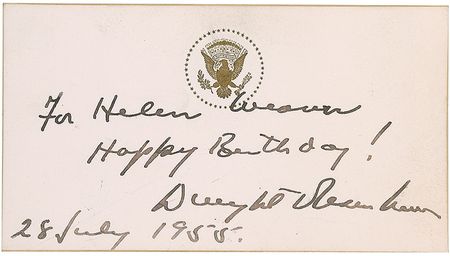 For Helen Weaver
Happy Birthday!
Dwight Eisenhower
28 July 1955.